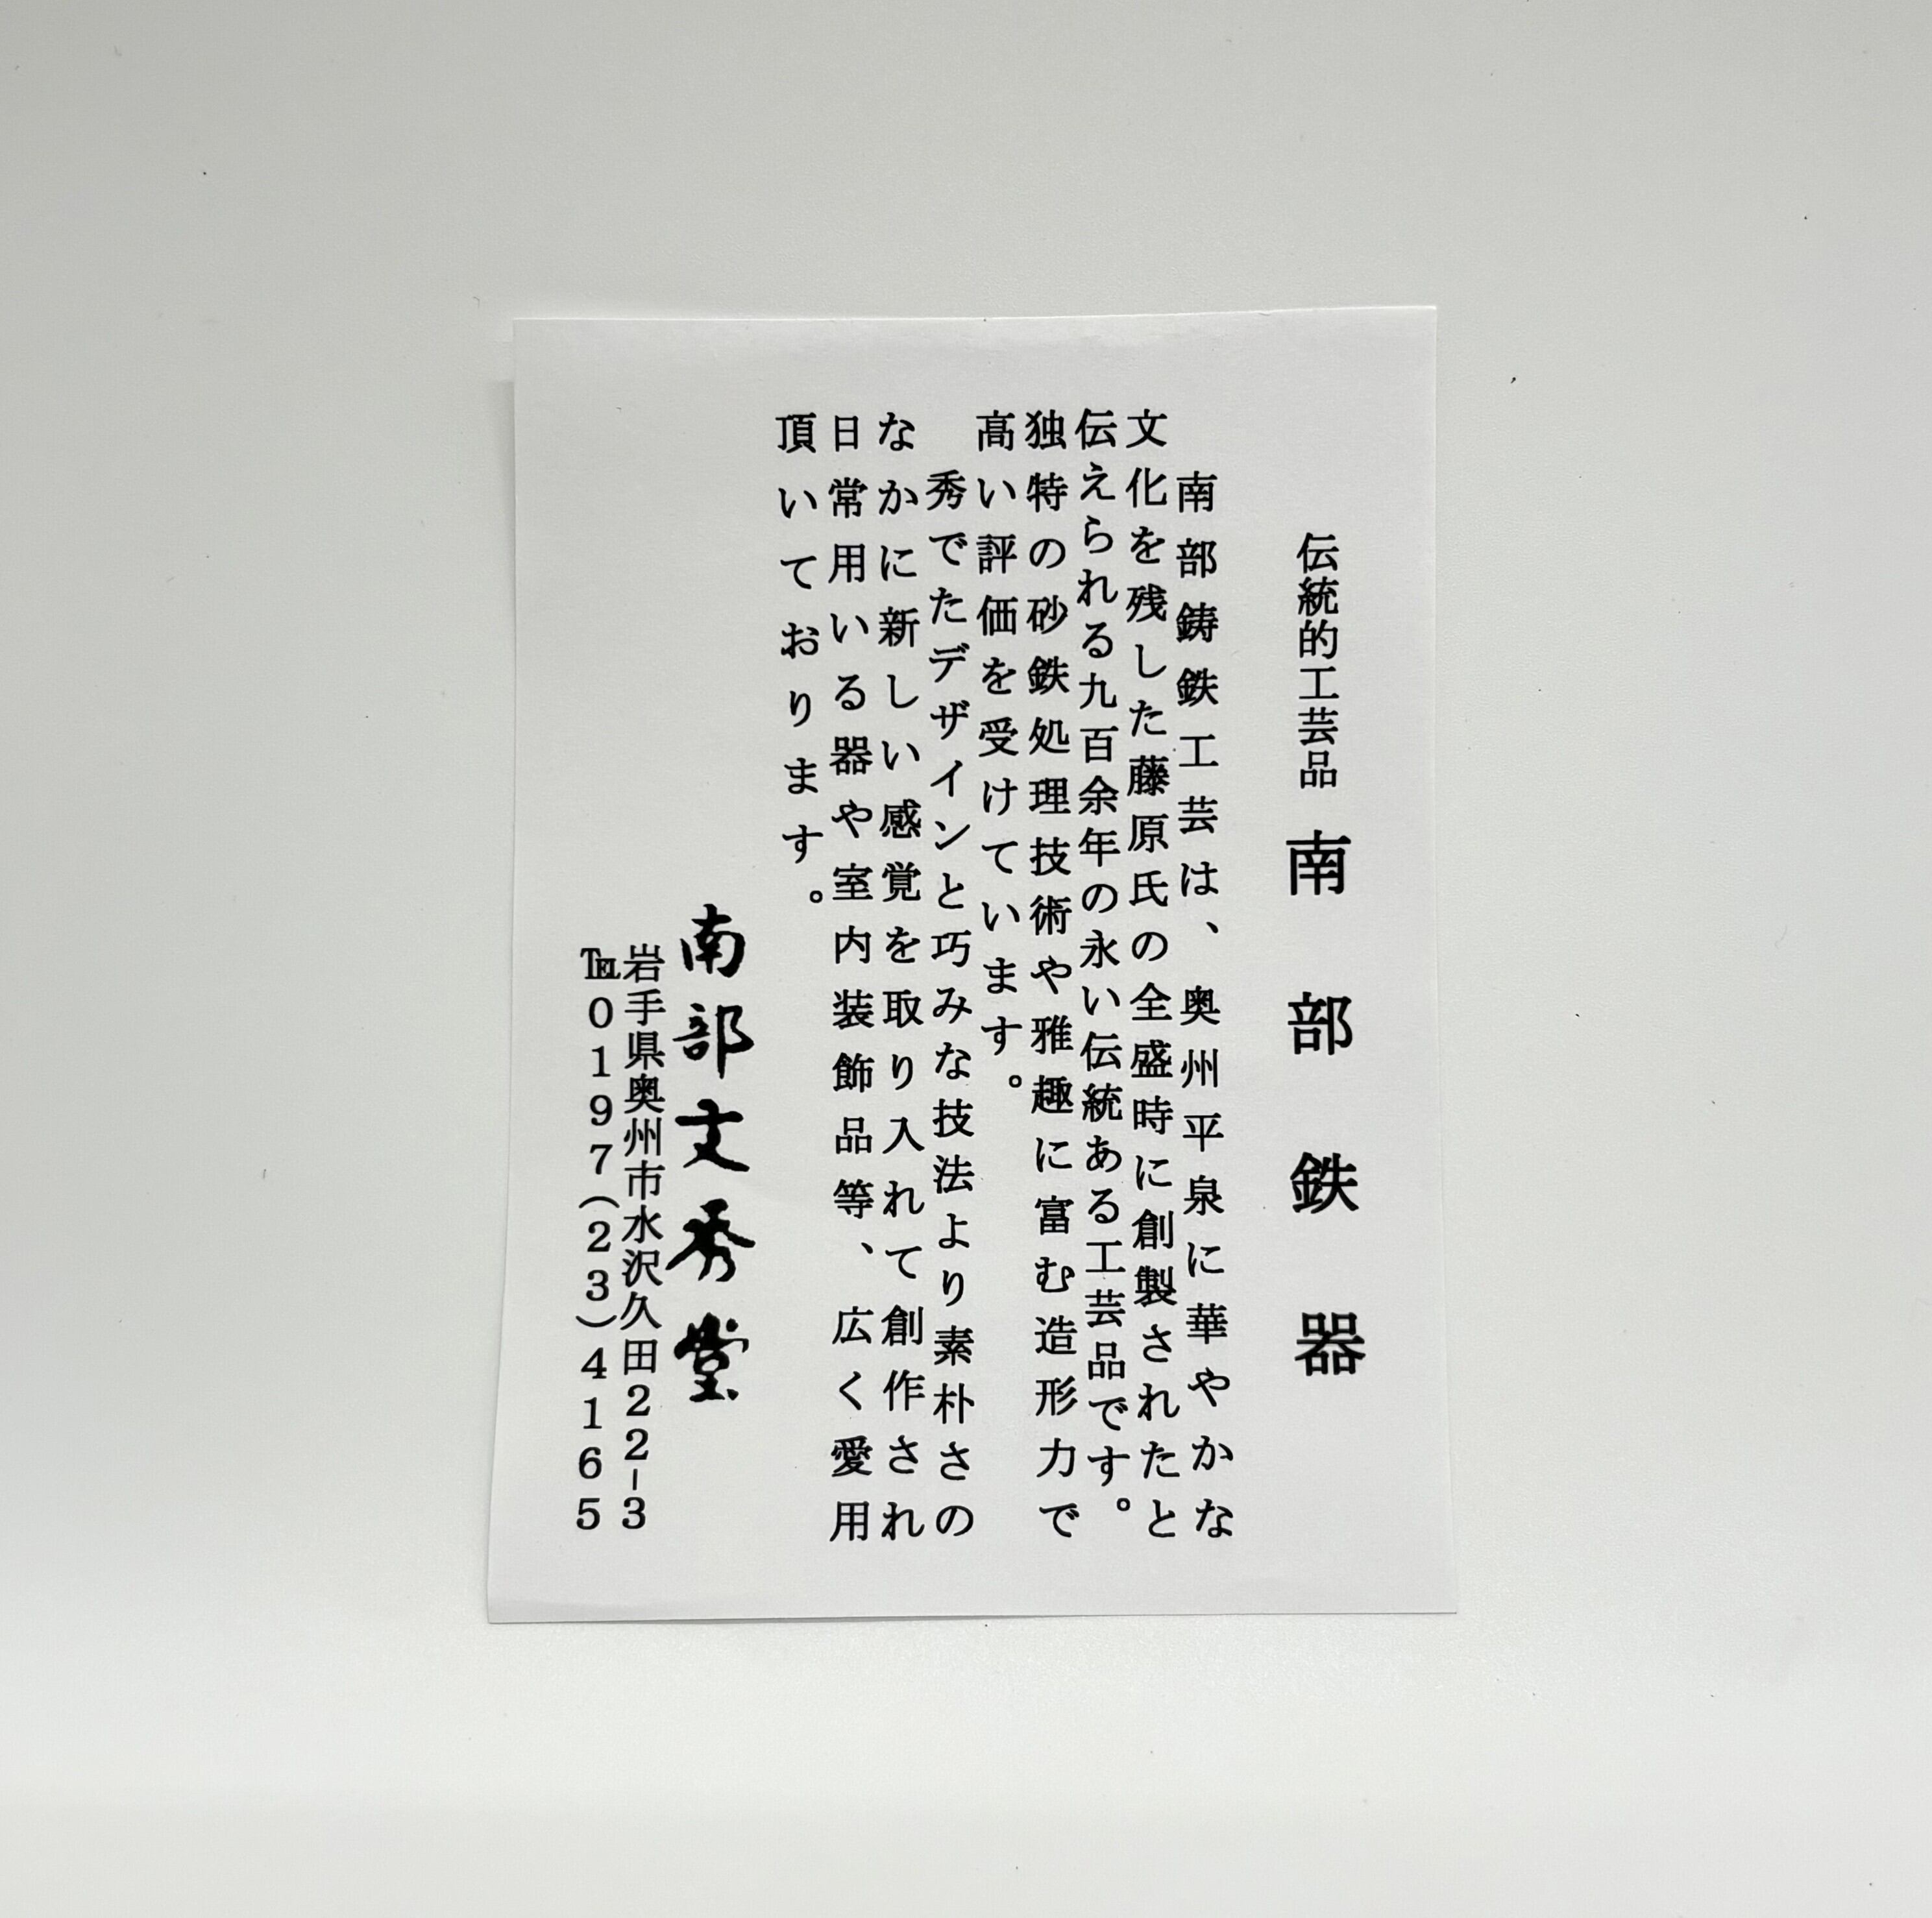 伝統的工芸品 南部鉄器
南部鋳鉄工芸は、奥州平泉に華やかな
文化を残した藤原氏の全盛時に創製されたと
伝えられる九百余年の永い伝統ある工芸品です。
独特の砂鉄処理技術や雅趣に富む造形力で
高い評価を受けています。
秀でたデザインと巧みな技法より素朴さの
なかに新しい感覚を取り入れて創作され
日常用いる器や室内装飾品等、広く愛用
頂いております。
南部文秀堂
岩手県奥州市水沢久田22-3
℡0197(23)4165